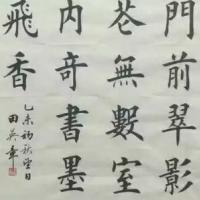 門前翠影
苍無數室
内奇書墨
飛香
乙未初秋望日
田英章